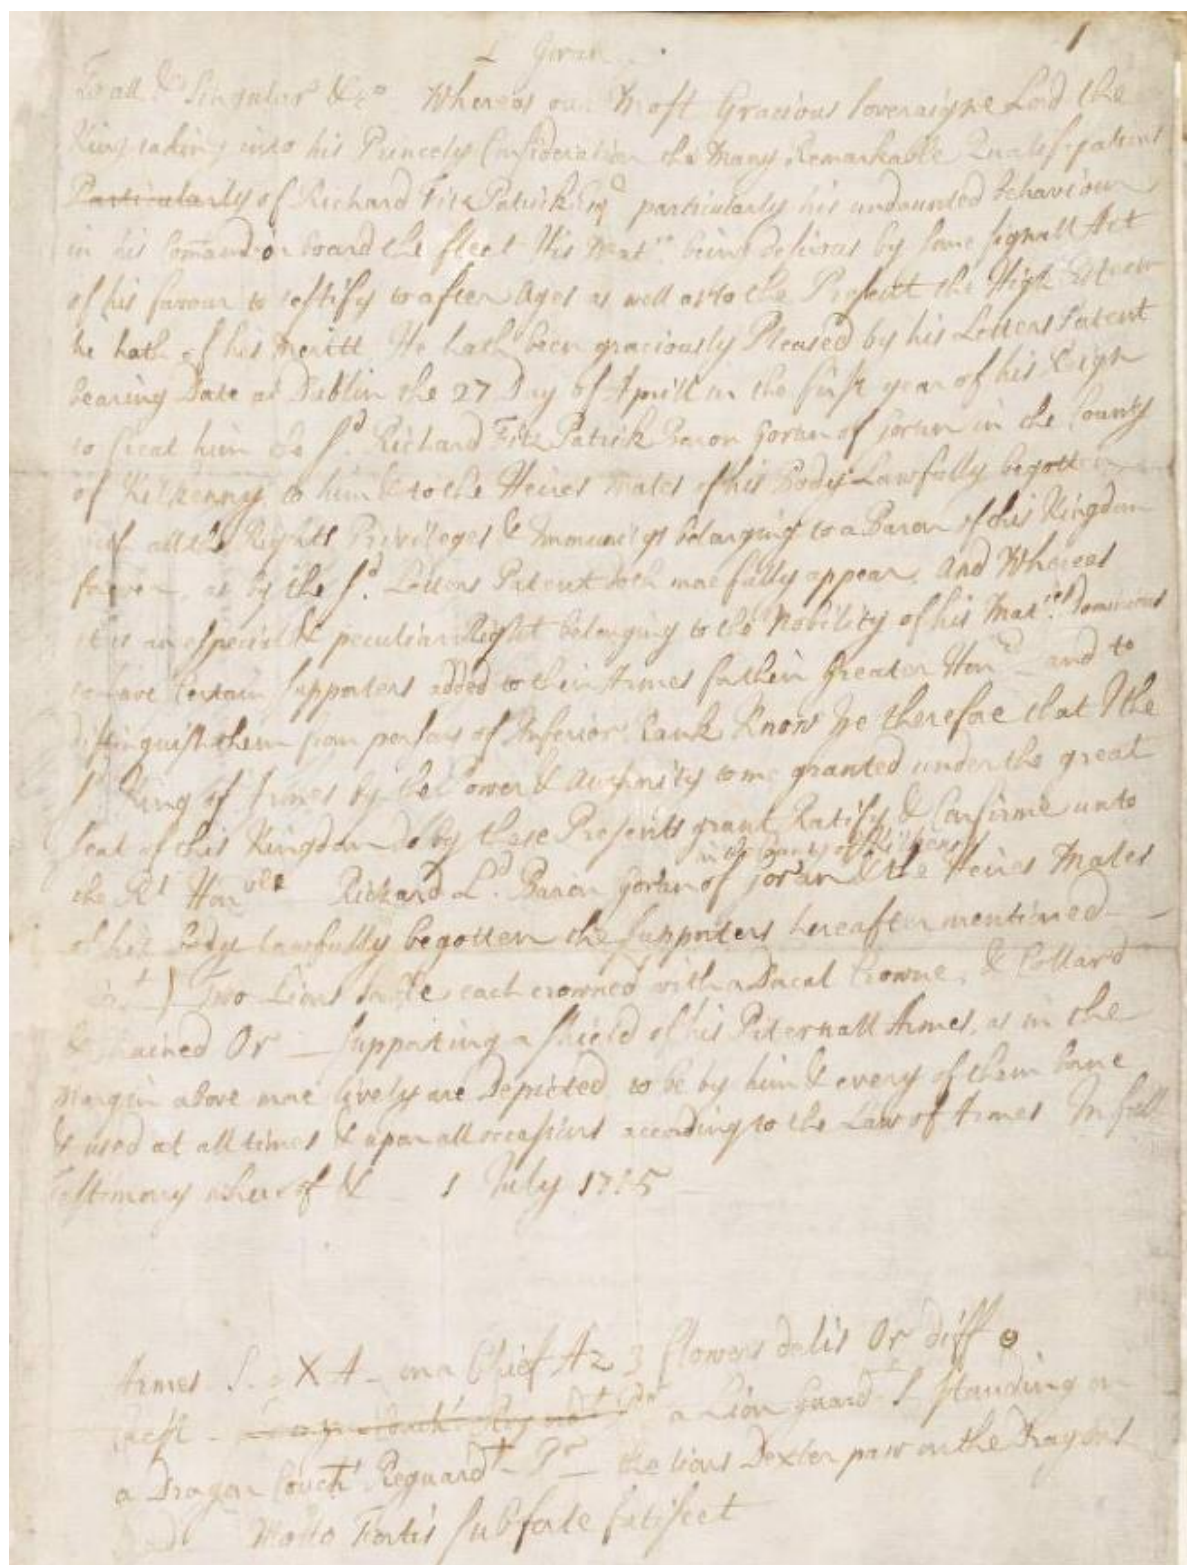 1
L Goran
To all & Singular &ca Whereas our Most Gracious Soveraigne Lord the
King taking into his Princely Consideration the Many Remarkable
Particularly of Richard Fitz Patrick Esqr particularly his undaunted behaviour
in his Comand on board the fleet His Matie being desirous by some signall Act
of his favour to testify to after Ages as well as to the Present the High Esteem
he hath of his Meritt He hath been graciously Pleased by his Letters Patent
bearing Date at Dublin the 27 Day of Aprill in the first year of his Reign
to Creat him the sd. Richard Fitz Patrick Baron Goran of Goran in the County
of Kilkenny to him & to the Heires Males of his Body Lawfully begotten
all the Rights Privileges & Immunitys belonging to a Baron of this Kingdom
for ever, as by the sd. Letters Patent doth more fully appear, And Whereas
it is an especiall & peculiar Right belonging to the Nobility of his Maties Dominions
to have Certain Supporters added to their Armes for their Greater Honr and to
distinguish them from persons of Inferior Rank Know ye therefore that I the
sd King of Armes by the Power & Authority to me granted under the great
seal of this Kingdom do by these Presents grant Ratify & Confirme unto
in the County of Kilkenny
the Rt Honble Richard Ld. Baron Goran of Goran & the Heires Males
of his body lawfully begotten the supporters hereafter mentioned
Two Lions Sable each crowned with a Ducal Crowne, & Collard
& Chained Or Supporting a Shield of his Paternall Armes, as in the
Margin above more lively are Depicted to be by him & every of them borne
& used at all times & upon all occasions according to the Law of Armes In full
Testimony whereof & 1 July 1715
Armes S. a X A on a Chief Az 3 flowers delis Or diff
Crest a Lion Guardt S standing on
a Dragon Coucht Reguardt Pr the lions Dexter paw on the Dragons
Motto Fortis sub forte fatiscet